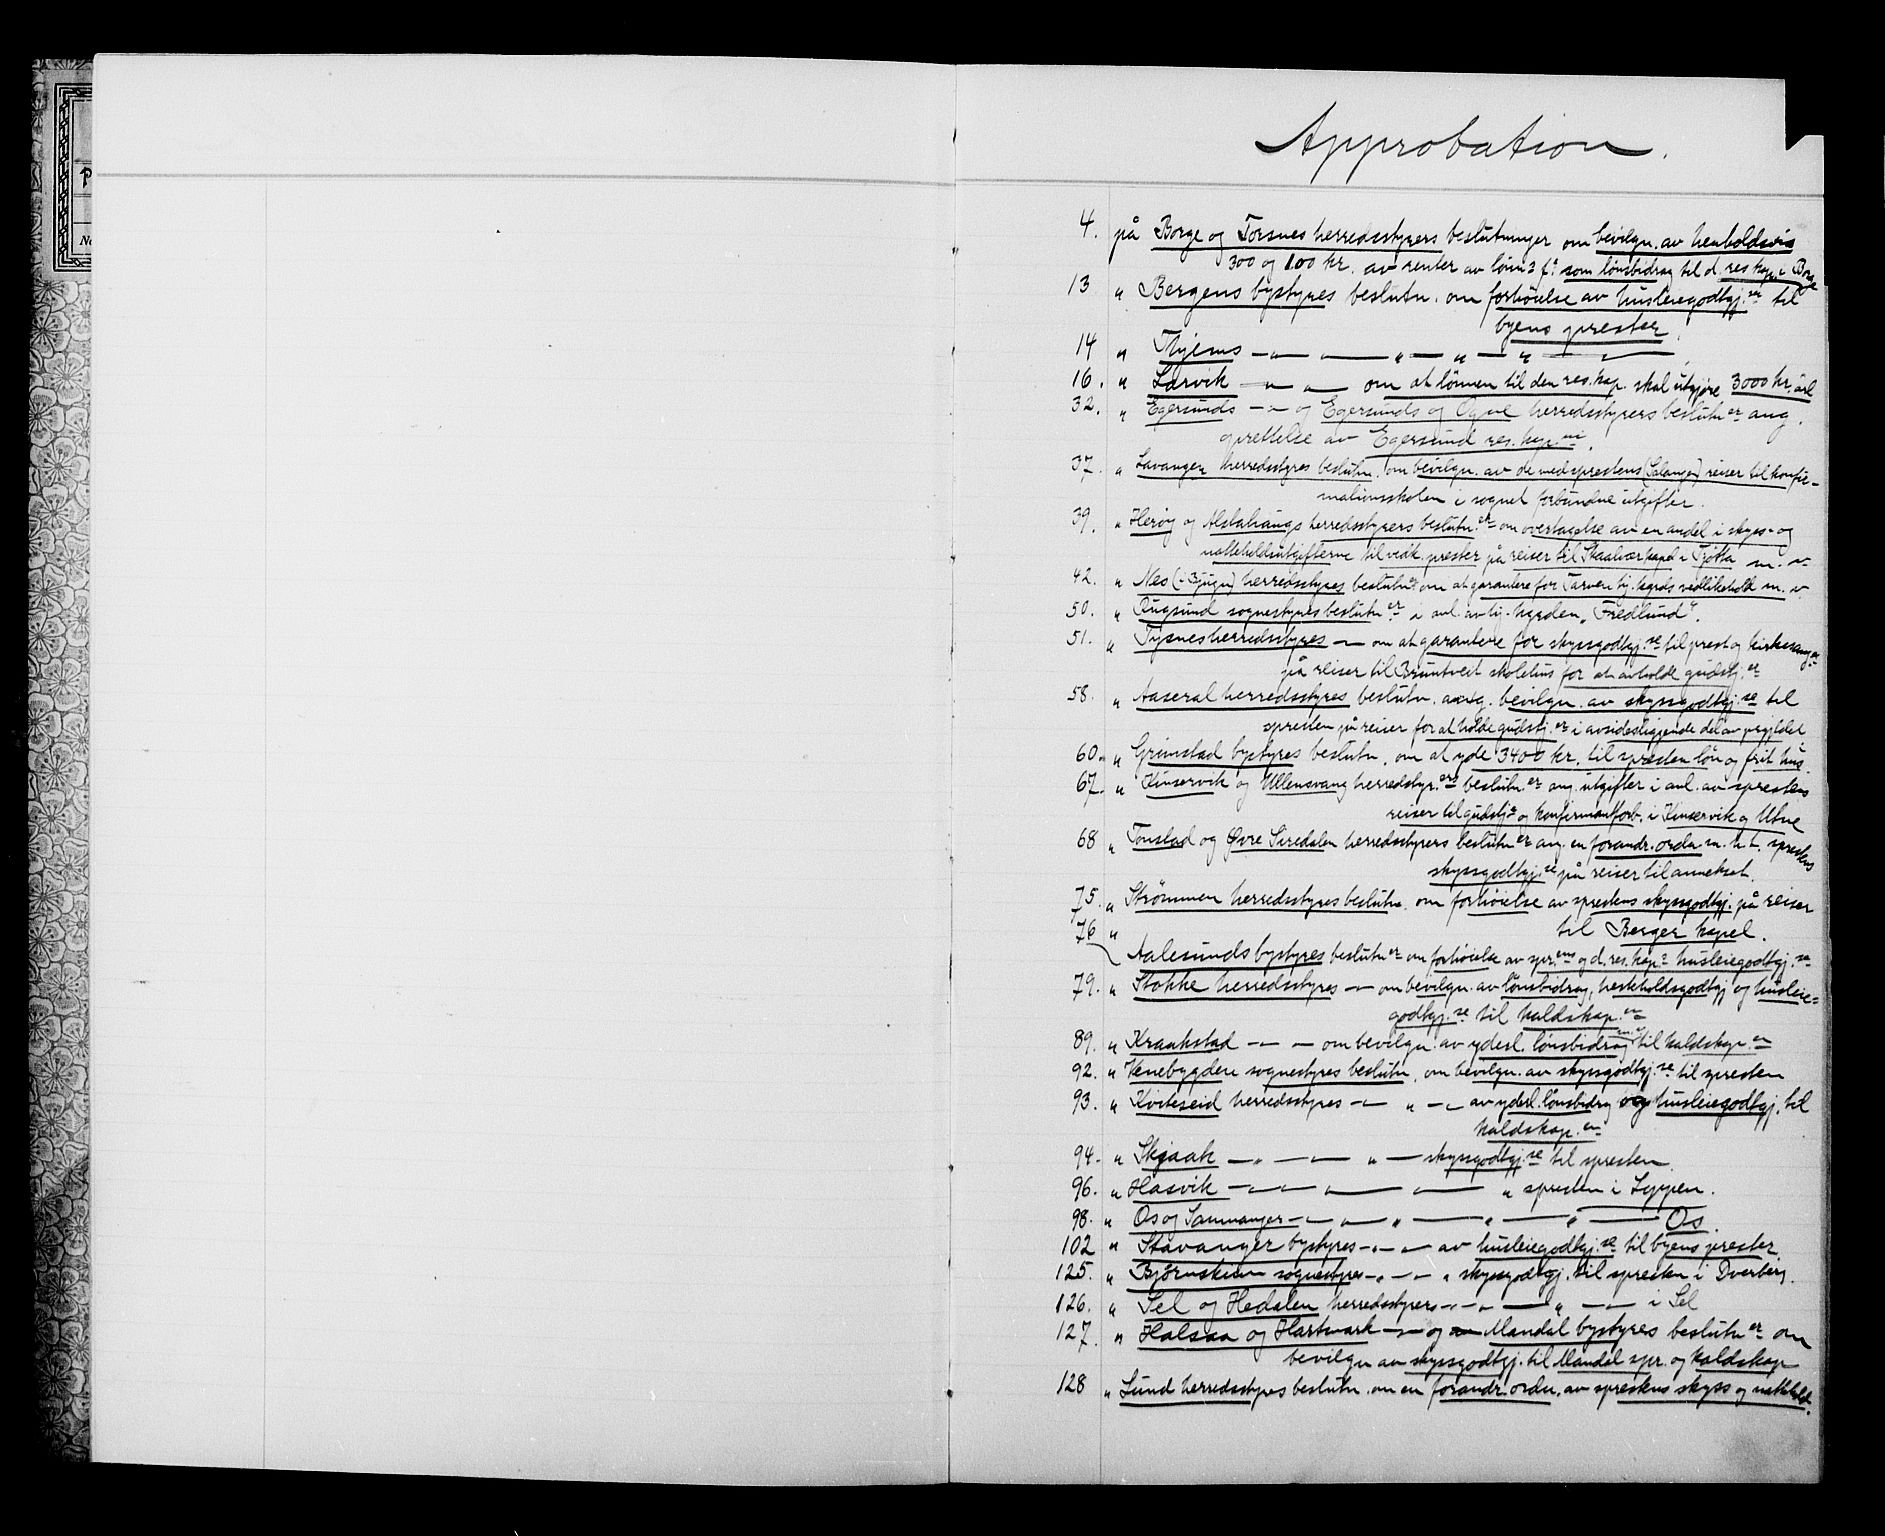 Approbation.
4. på Borge og Torsnes herredsstyrers beslutninger om bevilgn. av henholdsvis
300 og 100 kr. av renter av som lönsbidrag til d. res. kap. i Borge
13 " Bergens bystyres beslutn. om forhöielse av husleiegodtgj.se til
byens prester.
14 " — " — — " — " — " —
16. " Larvik — " — om at lönnen til den res. kap. skal utgjöre 3000 kr. årl
32. " Egersunds — " — og Egersunds og Ogne herredsstyrers beslutn.er ang.
oprettelse av Egersund res. kap.
37. " Lavangen herredsstyres beslutn. om bevilgn. av de med sprestens (Salangen) reiser til konfir-
mationsskolen i sognet forbundne utgifter.
39. " Heröy og Alstahaugs herredsstyrers beslutn.er om overtagelse av en andel i skyss- og
natteholdsutgifterne til vedk. prester på reiser til Skaalvær kapel i Tjötta m. v.
42. " Nes ( ) herredsstyres beslutn. om at garantere for vedlikehold m. v
50. " Rugsund sognestyres beslutn.er i anl. av tj. gården "Fredlund".
51. " Tysnes herredsstyres — om at garantere for skyssgodtgj.se til prest og kirkesanger
på reiser til Bruntveit skolehus for at avholde gudstj.er
58. " Aaseral herredsstyres beslutn. ang. bevilgn. av skyssgodtgj.se til
spresten på reiser for at holde gudstj.er i avsidesliggende del av prgjeldet
60. " Grimstad bystyres beslutn. om at yde 3400 kr. til spresten lön og frit hus.
67. " Kinservik og Ullensvang herredsstyr.ers beslutn.er ang. utgifter i anl. av sprestens
reiser til gudstj. og konfirmantforb. i Kinservik og Utne
68 " Tonstad og Øvre Siredalen herredsstyrers beslutn.er ang. en forandr. ordn. m. h. t. sprestens
skyssgodtgj.se på reiser til annekset.
75. " Strömmen herredsstyres beslutn. om forhöielse av sprestens skyssgodtgj. på reiser
til Berger kapel.
76 " Aalesunds bystyres beslutn.er om forhöielse av spr.ens og d. res. kap.s husleiegodtgj.se
79. " Stokke herredsstyres — om bevilgn. av lönsbidrag, hesteholdsgodtgj og husleie-
godtgj.se til kaldskap.en
89. " Kraakstad — " — om bevilgn. av yderl. lönsbidrag til kaldskap.en
92. " Venebygden sognestyres beslutn. om bevilgn. av skyssgodtgj.se til spresten
93. " Kviteseid herredsstyres — " — " — av yderl. lönsbidrag og husleiegodtgj. til
kaldskap.en
94. " Skjaak — " — — " — skyssgodtgj.se til spresten.
96. " Hasvik — " — " — — " spresten i Loppen.
98. " Os og Samnanger — " — " — " — " — Os.
102 " Stavanger bystyres — " — " — av husleiegodtgj.se til byens prester.
125. " Björnskinn sognestyres — " — — " skyssgodtgj. til spresten i Dverberg.
126. " Sel og Hedalen herredsstyrers — " — " — " — i Sel
127. " Halsaa og Hartmark — " — og Mandal bystyres beslutn.er om
bevilgn av skyssgodtgj. til Mandal spr. og kaldskap
128 " Lund herredsstyres beslutn. om en forandr. ordn. av sprestens skyss og nattehold.